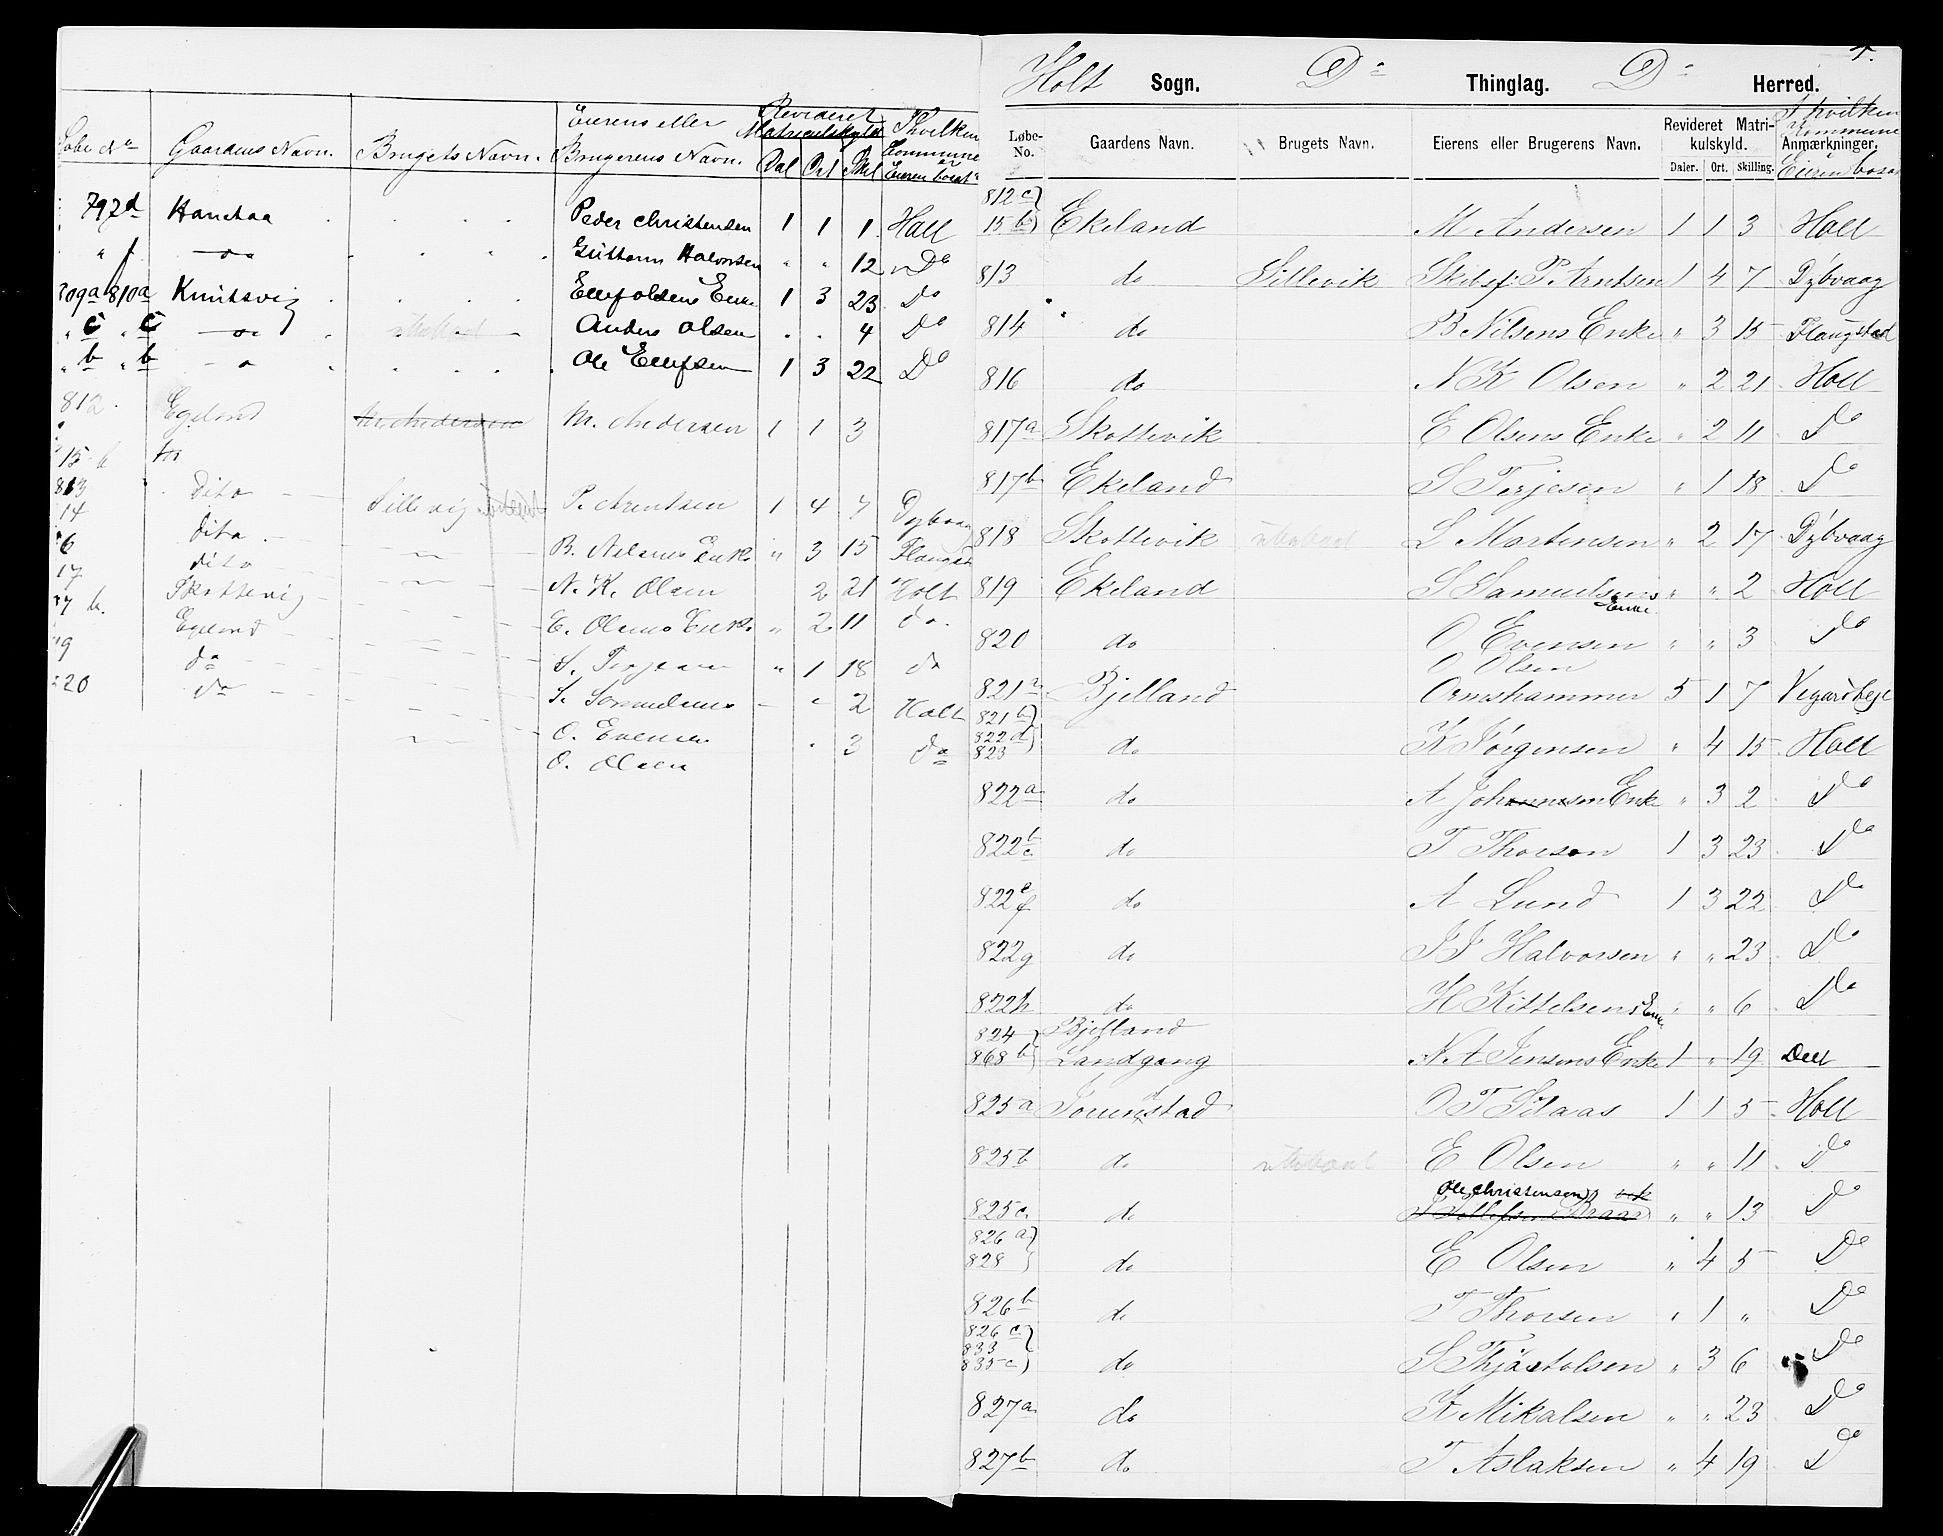 Løbe No Gaardens Navn. Brugets Navn. Eierens eller Brugerens Navn. Revideret Matriculskyld Dal Ort Skil I hvilken Kommune er Eieren bosat
797d Hanchaa Peder Christensen 1 1 1 Holt
" f do Guttorm Halvorsen " " 12 Do
809a 810a Knutsvig Ellef Olsens Enke 1 3 23 Do
" c " c do Anders Olsen " " 4 Do
" b " b do Ole Ellefsen 1 3 22 Do
812 Egeland M. Andersen M. Andersen 1 1 3
15 b
813 Dito Sillevig P. Arentsen 1 4 7 Dybvaag
14 Dito B. Nelsens Enke " 3 15 Flangst
16 Dito N. K. Olsen 2 21 Holt
17 Skottevig E. Olsens Enke " 2 11 do
17 b. Egeland S. Terjesen " 1 18 do
19 do S. Samuelsens " 2 Holt
820 do O. Evensen " 3 do
O. Olsen
4.
Holt Sogn. Do Thinglag. Do Herred.
Løbe-No. Gaardens Navn. Brugets Navn. Eierens eller Brugerens Navn. Revideret Matrikulskyld. Daler. Ort. Skilling. Anmærkninger. I hvilken Kommune er Eieren bosat
812 c
15 b Ekeland M Andersen 1 1 3 Holt
813 do Sillevik Skibsf. P. Arntsen 1 4 7 Dybvaag
814 do B Nilsens Enke " 3 15 Flangstad
816 do N K Olsen " 2 21 Holt
817a Skottevik E Olsens Enke " 2 11 Do
817b Ekeland S Terjesen " 1 18 Do
818 Skottevik ubeboet L Mortensen " 2 17 Dybvaag
819 Ekeland S Samuelsens Enke " " 2 Holt
820 do O Evensen " " 3 Do
O Olsen
821a Bjelland Ormshammer 5 1 7 Vegardshejl
821b
822d
823 do K Jørgensen " 4 15 Holt
822a do A Johannesen Enke " 3 2 Do
822 b c do T Thorson 1 3 23 Do
822 e f do A Lund 1 3 22 Do
822g do J J Halvorsen " " 23 Do
822h do H Kittelsens Enke " " 6 Do
824 Bjelland
868 b Landgang N A Jensens Enke 1 " 19 Do
825a Jorunstad O T Filaas 1 1 5 Holt
825b do ubeboet E Olsen " " 11 Do
Ole Christensen
825c do " " 13 Do
826 a
828 do E Olsen " 4 5 Do
826b do T Thorsen " 1 " Do
826 c
833
835 c do S Thjøstolsen " 3 6 Do
827a do K Mikalsen " " 23 Do
827b do T Aslaksen " 4 19 Do